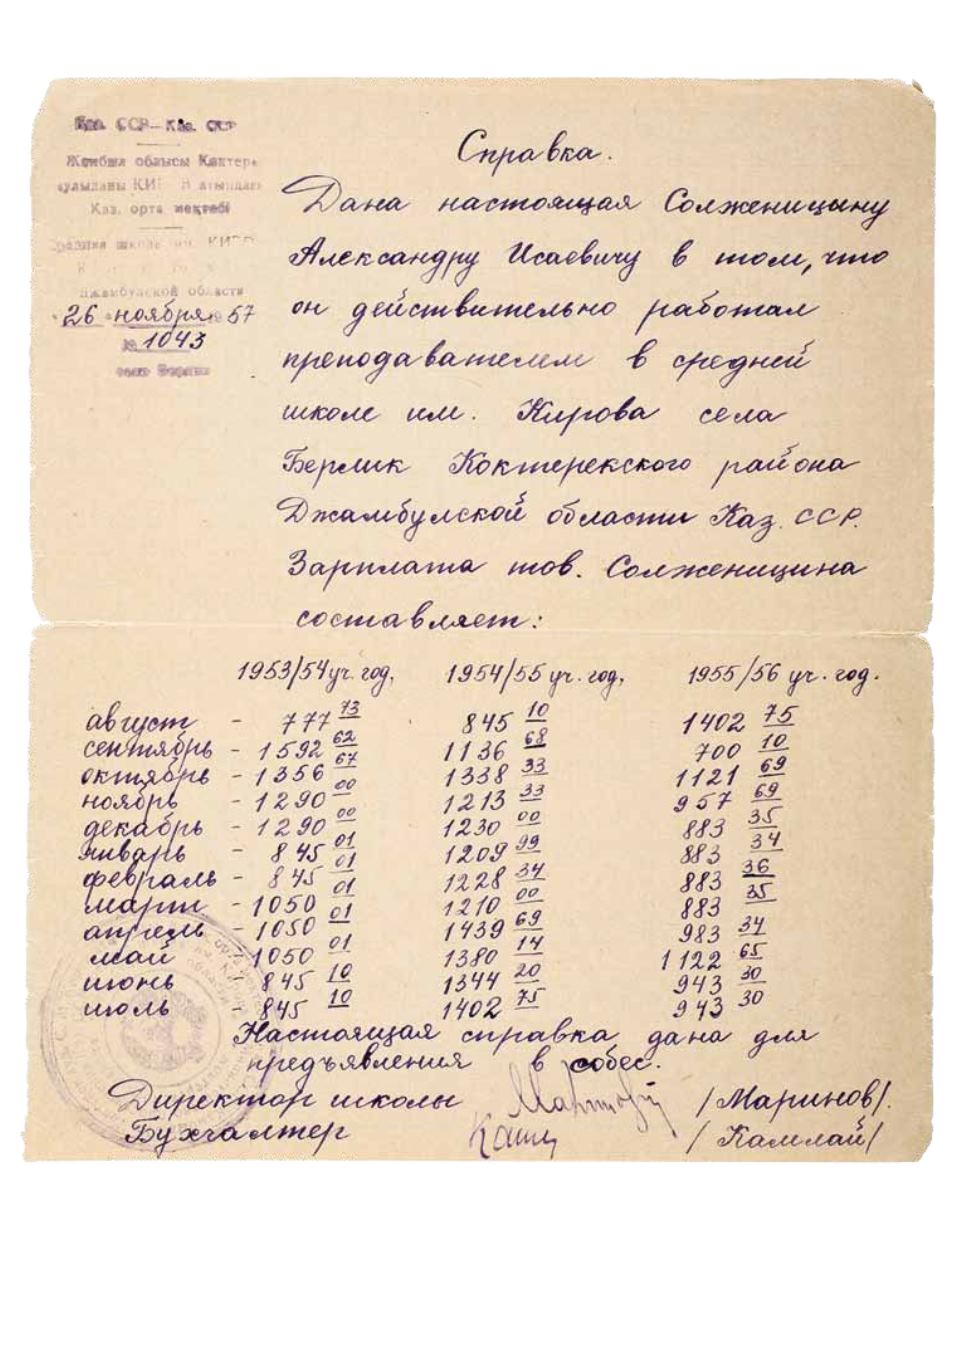 Каз. ССР – Каз. ССР
облысы
КИР
Каз. орта мектебі
школа им. КИРО
Джамбулской области
26 ноября 1957
№ 1043
село
Справка.
Дана настоящая Солженицыну
Александру Исаевичу в том, что
он действительно работал
преподавателем в средней
школе им. Кирова села
Берлик Коктерекского района
Джамбулской области Каз. ССР.
Зарплата тов. Солженицина
составляет:
1953/54 уч. год. 1954/55 уч. год. 1955/56 уч. год.
август - 777 73 845 10 1402 75
сентябрь - 1592 62 1136 68 700 10
октябрь - 1356 67 1338 33 1121 69
ноябрь - 1290 00 1213 33 957 69
декабрь - 1290 00 1230 00 883 35
январь - 845 01 1209 99 883 34
февраль - 845 01 1228 34 883 36
март - 1050 01 1210 00 883 35
апрель - 1050 01 1439 69 983 34
май - 1050 01 1380 14 1122 65
июнь - 845 10 1344 20 943 30
июль - 845 10 1402 75 943 30
Настоящая справка дана для
предъявления в собес.
Директор школы /Маринов/.
Бухгалтер /Камлай/